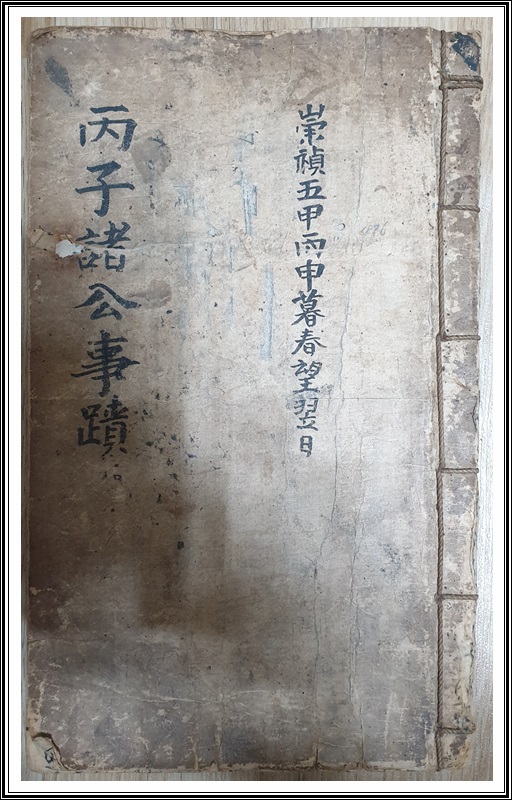 崇禎五甲丙申暮春望翌日
丙子諸公事蹟